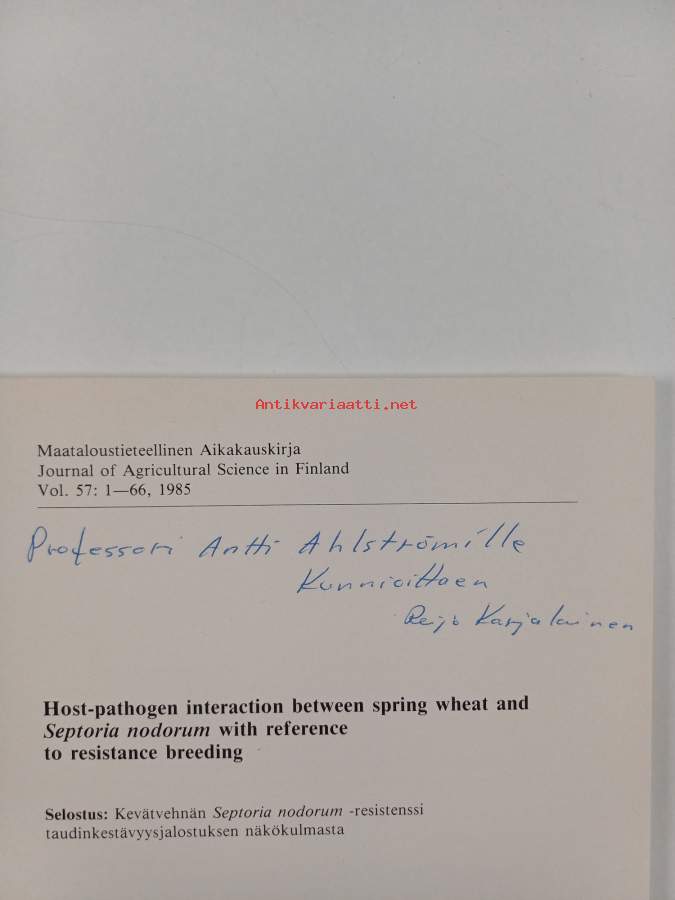 Antikvariaatti.net
Maataloustieteellinen Aikakauskirja
Journal of Agricultural Science in Finland
Vol. 57: 1—66, 1985
Professori Antti Ahlströmille
Kunnioittaen
Reijo Karjalainen
Host-pathogen interaction between spring wheat and
Septoria nodorum with reference
to resistance breeding
Selostus: Kevätvehnän Septoria nodorum -resistenssi
taudinkestävyysjalostuksen näkökulmasta